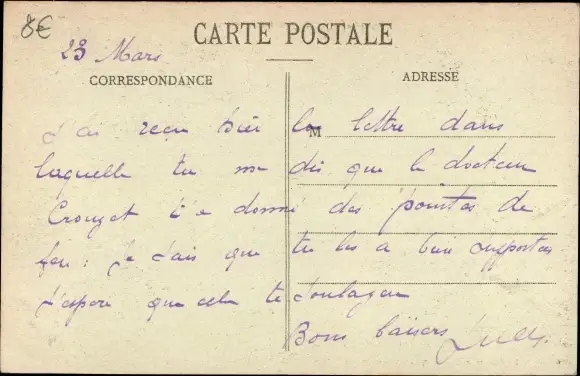 8€
CARTE POSTALE
23 Mars
CORRESPONDANCE
ADRESSE
M
J'ai reçu hier la lettre dans
laquelle tu me dis que le docteur
Crouzet t'a donné des pointes de
feu : je sais que tu les a bien supportées
j'espère que cela te soulagera
Bons baisers